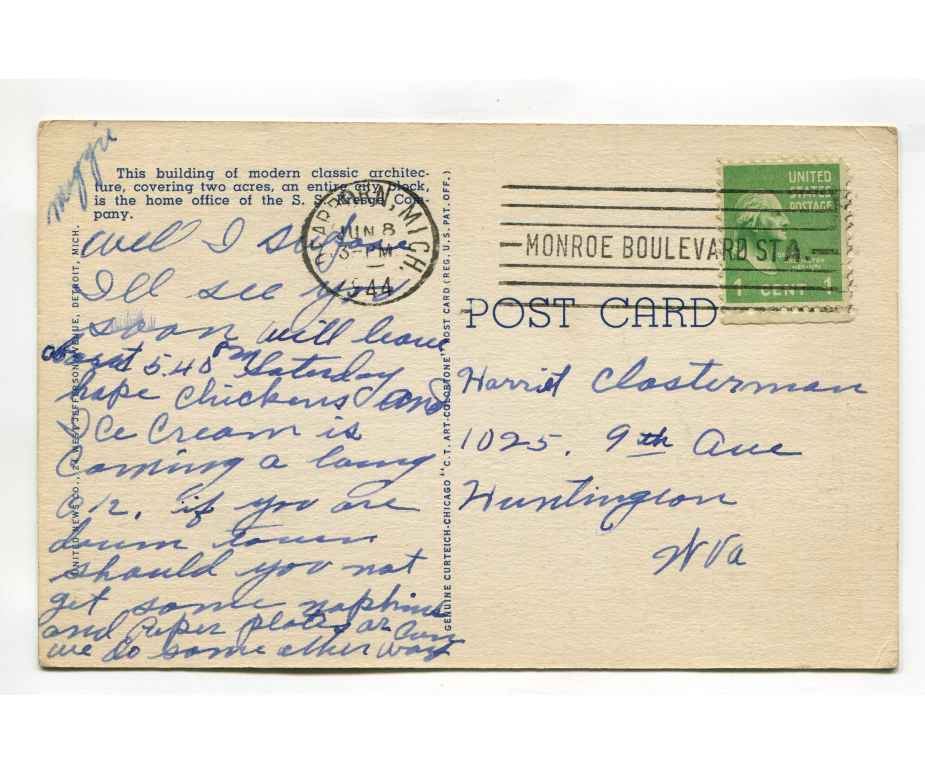 This building of modern classic architec-
ture, covering two acres, an entire city block,
is the home office of the S. S. Kresge Com-
pany.
Well I suppose
I'll see you
soon will leave
about 5.40 PM Saturday
hope chickens and
Ice Cream is
Coming a long
O.K. if you are
down town
should you not
get some napkins
and Paper plates or Can
we do some other way
UNITED NEWS CO., WEST JEFFERSON AVENUE, DETROIT, MICH.
GENUINE CURTEICH-CHICAGO "C.T. ART-COLORTONE" POST CARD (REG. U.S. PAT. OFF.)
DEARBORN, MICH.
JUN 8
3-PM
1944
MONROE BOULEVARD STA.
UNITED
STATES
POSTAGE
1 CENT 1
POST CARD
Harriet Closterman
1025. 9th Ave
Huntington
W Va